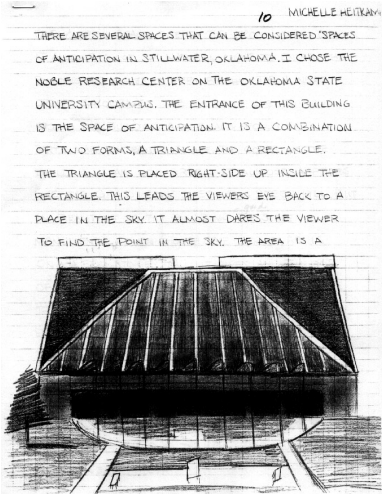 10 MICHELLE HEITKAM
THERE ARE SEVERAL SPACES THAT CAN BE CONSIDERED "SPACES
OF ANTICIPATION IN STILLWATER, OKLAHOMA. I CHOSE THE
NOBLE RESEARCH CENTER ON THE OKLAHOMA STATE
UNIVERSITY CAMPUS. THE ENTRANCE OF THIS BUILDING
IS THE SPACE OF ANTICIPATION. IT IS A COMBINATION
OF TWO FORMS, A TRIANGLE AND A RECTANGLE.
THE TRIANGLE IS PLACED RIGHT-SIDE UP INSIDE THE
RECTANGLE. THIS LEADS THE VIEWERS EYE BACK TO A
PLACE IN THE SKY. IT ALMOST DARES THE VIEWER
TO FIND THE POINT IN THE SKY. THE AREA IS A